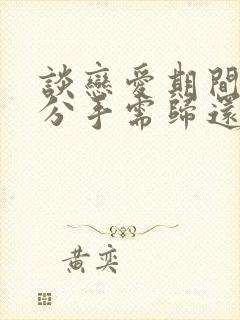 談戀愛期間
分手需歸還
黃奕